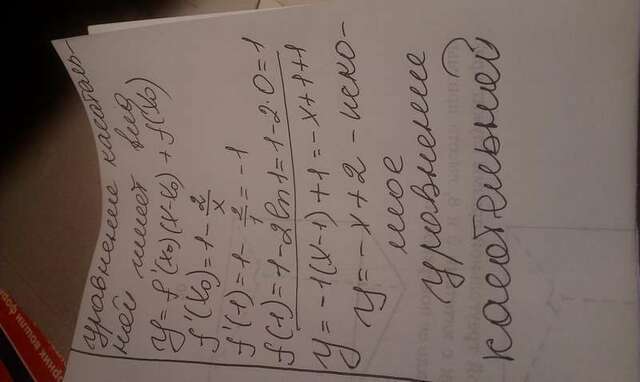 уравнение касатель-
ной имеет вид
y = f'(x₀)(x-x₀) + f(x₀)
f'(x₀) = 1 - 2/x
f'(1) = 1 - 2/1 = -1
f(1) = 1 - 2ln1 = 1 - 2·0 = 1
y = -1(x-1) + 1 = -x+1+1
y = -x + 2 - иско-
мое
уравнение
касательной